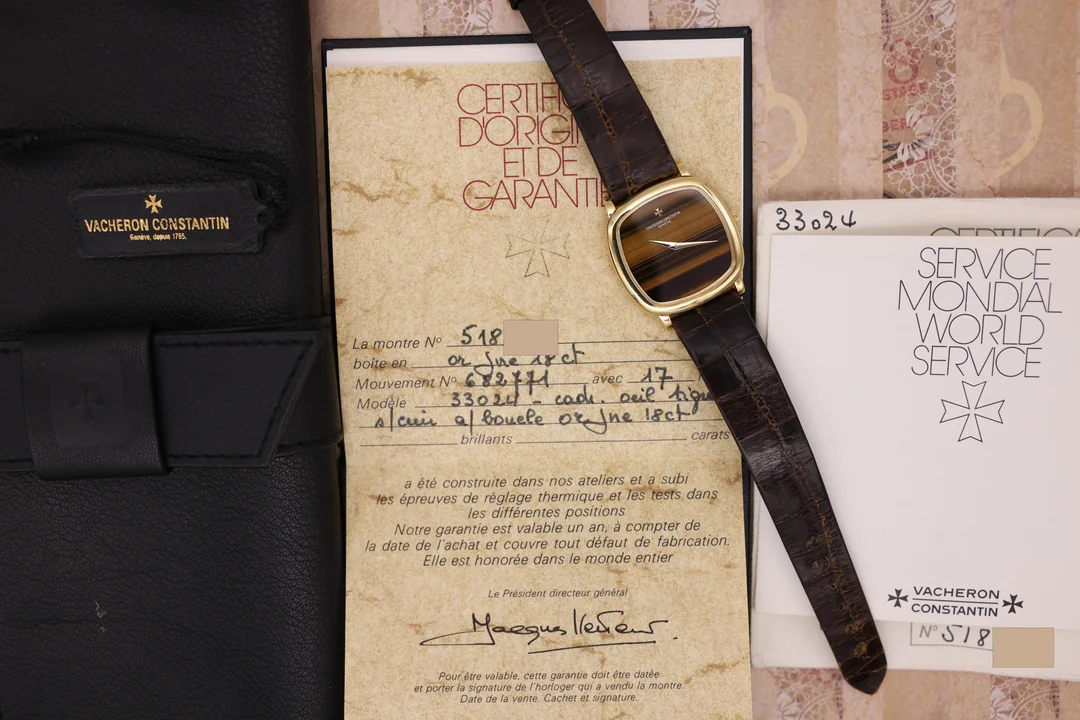 VACHERON CONSTANTIN
Genève, depuis 1785.
CERTIFIC
D'ORIGIN
ET DE
GARANTI
La montre Nº 518
boîte en or jne 18 ct
Mouvement Nº 682771 avec 17
Modèle 33024 - cadr. oeil tigre
s/cuir a/ boucle or jne 18ct
brillants carats
a été construite dans nos ateliers et a subi
les épreuves de réglage thermique et les tests dans
les différentes positions
Notre garantie est valable un an, à compter de
la date de l'achat et couvre tout défaut de fabrication.
Elle est honorée dans le monde entier
Le Président directeur général
Pour être valable, cette garantie doit être datée
et porter la signature de l'horloger qui a vendu la montre.
Date de la vente. Cachet et signature.
VACHERON CONSTANTIN
GENEVE
33024
CERTIFICA
SERVICE
MONDIAL
WORLD
SERVICE
VACHERON
CONSTANTIN
Nº 518